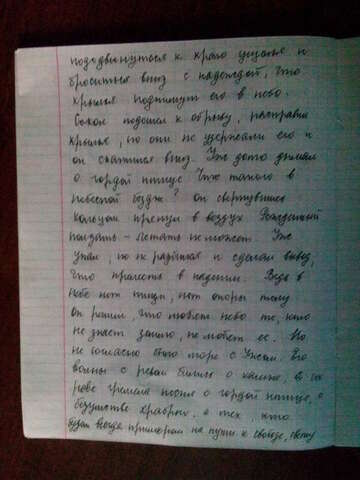 пододвинуться к краю ущелья и
броситься вниз с надеждой, что
крылья поднимут его в небо.
Сокол подошел к обрыву, расправил
крылья, но они не удержали его и
он скатился вниз. Уж долго думал
о гордой птице Что же такого в
небесной бездне? он свернувшись
кольцом прянул в воздух Рожденный
ползать – летать не может. Уж
упал, но не разбился и сделал вывод,
что прелесть в падении. Ведь в
небе нет пищи, нет опоры телу
Он решил, что любят небо те, кто
не знает землю, не любит ее. Но
не согласно было море с Ужом. Его
волны с ревом бились о камни, в их
реве гремела песня о гордой птице, о
безумстве храбрых, о тех кто
будет всегда примером на пути к свободе, свету